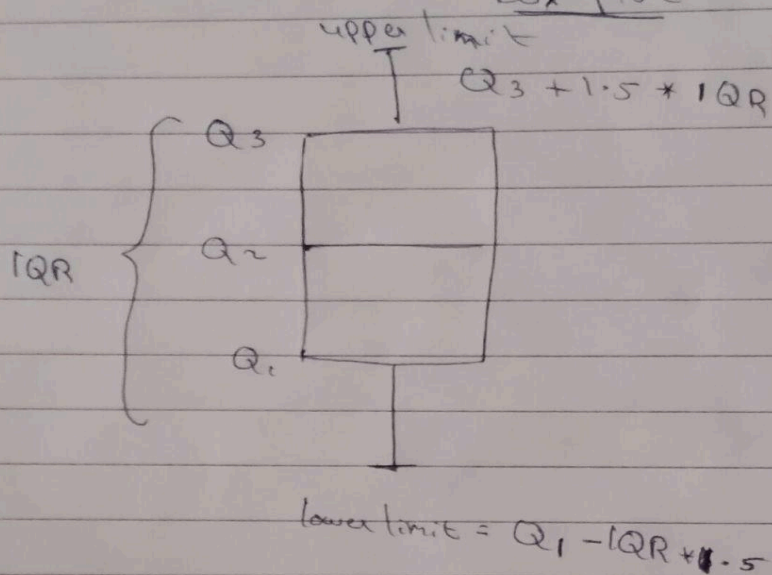 upper limit
Q3 + 1.5 * IQR
Q3
Q2
IQR
Q1
lower limit = Q1 - IQR * 1.5